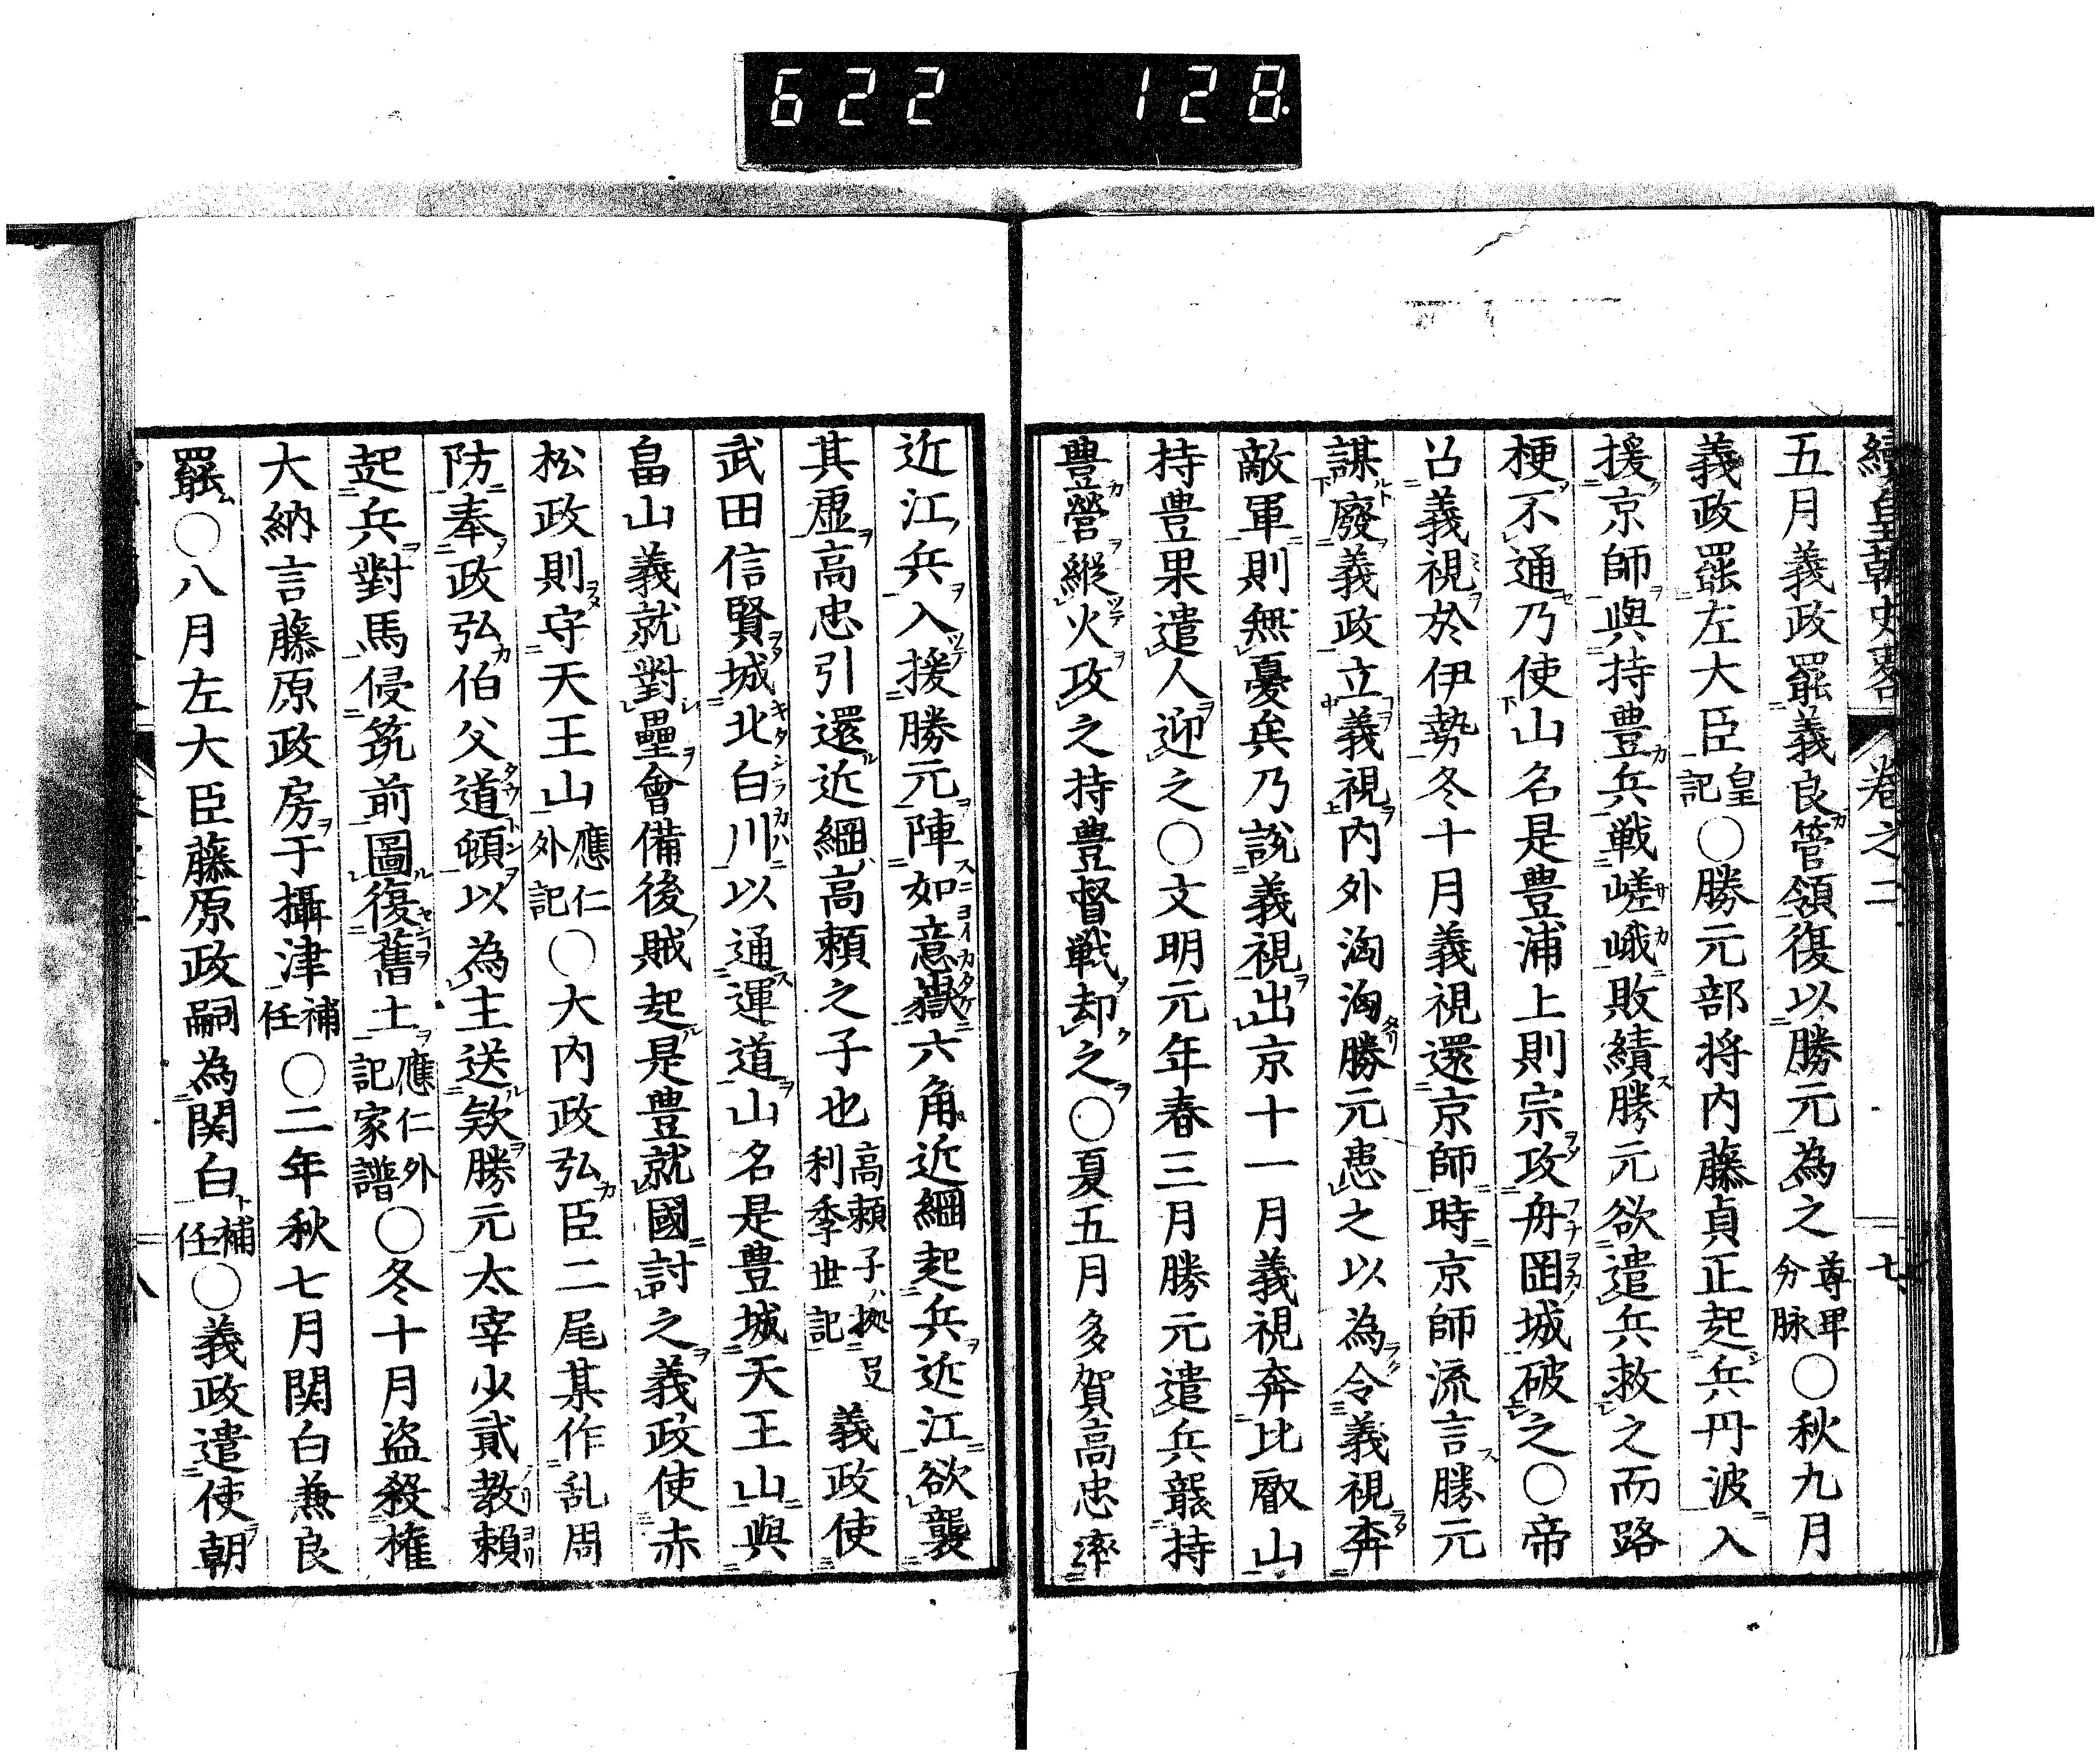 622 128
續皇朝史畧 卷之二 七
五月義政罷義良管領復以勝元為之尊卑分脉〇秋九月
義政罷左大臣皇記〇勝元部将内藤貞正起兵丹波入
援京師與持豊兵戦嵯峨敗績勝元欲遣兵救之而路
梗不通乃使山名是豊浦上則宗攻舟岡城破之〇帝
召義視於伊勢冬十月義視還京師時京師流言勝元
謀廢義政立義視内外洶洶勝元患之以為令義視奔
敵軍則無憂矣乃説義視出京十一月義視奔比叡山
持豊果遣人迎之〇文明元年春三月勝元遣兵襲持
豊營縱火攻之持豊督戦却之〇夏五月多賀高忠率
近江兵入援勝元陣如意嶽六角近綱起兵近江欲襲
其虚高忠引還近綱高頼之子也高頼子拠足利季世記義政使
武田信賢城北白川以通運道山名是豊城天王山與
畠山義就對壘會備後賊起是豊就國討之義政使赤
松政則守天王山應仁外記〇大内政弘臣二尾某作乱周
防奉政弘伯父道頓以為主送欵勝元太宰少貳教頼
起兵對馬侵筑前圖復舊土應仁外記家譜〇冬十月盗殺権
大納言藤原政房于攝津補任〇二年秋七月関白兼良
罷〇八月左大臣藤原政嗣為関白補任〇義政遣使朝
八